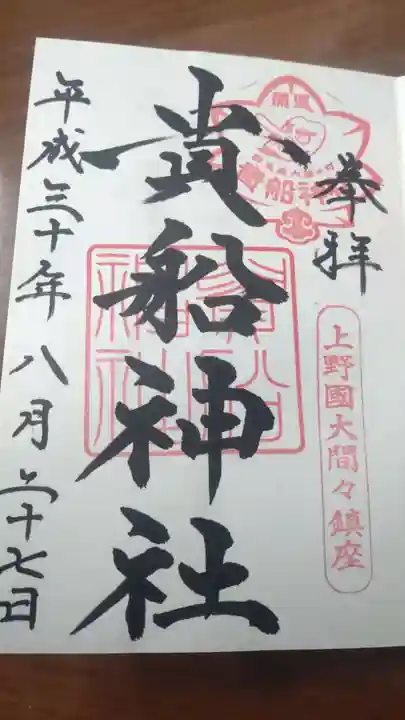 奉拝
上野國大間々鎮座
貴船神社
貴船神社
平成三十年八月二十七日